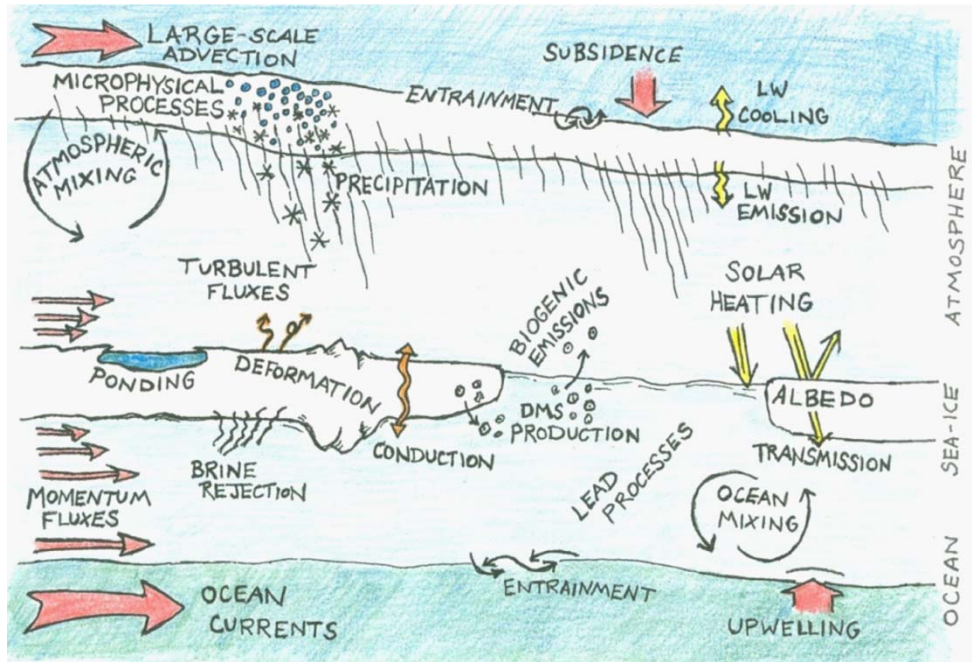 LARGE-SCALE
ADVECTION
SUBSIDENCE
MICROPHYSICAL
PROCESSES
ENTRAINMENT
LW
COOLING
ATMOSPHERIC
MIXING
PRECIPITATION
LW
EMISSION
ATMOSPHERE
TURBULENT
FLUXES
BIOGENIC
EMISSIONS
SOLAR
HEATING
PONDING
DEFORMATION
ALBEDO
DMS
PRODUCTION
SEA-ICE
CONDUCTION
TRANSMISSION
BRINE
REJECTION
LEAD
PROCESSES
MOMENTUM
FLUXES
OCEAN
MIXING
OCEAN
ENTRAINMENT
OCEAN
CURRENTS
UPWELLING